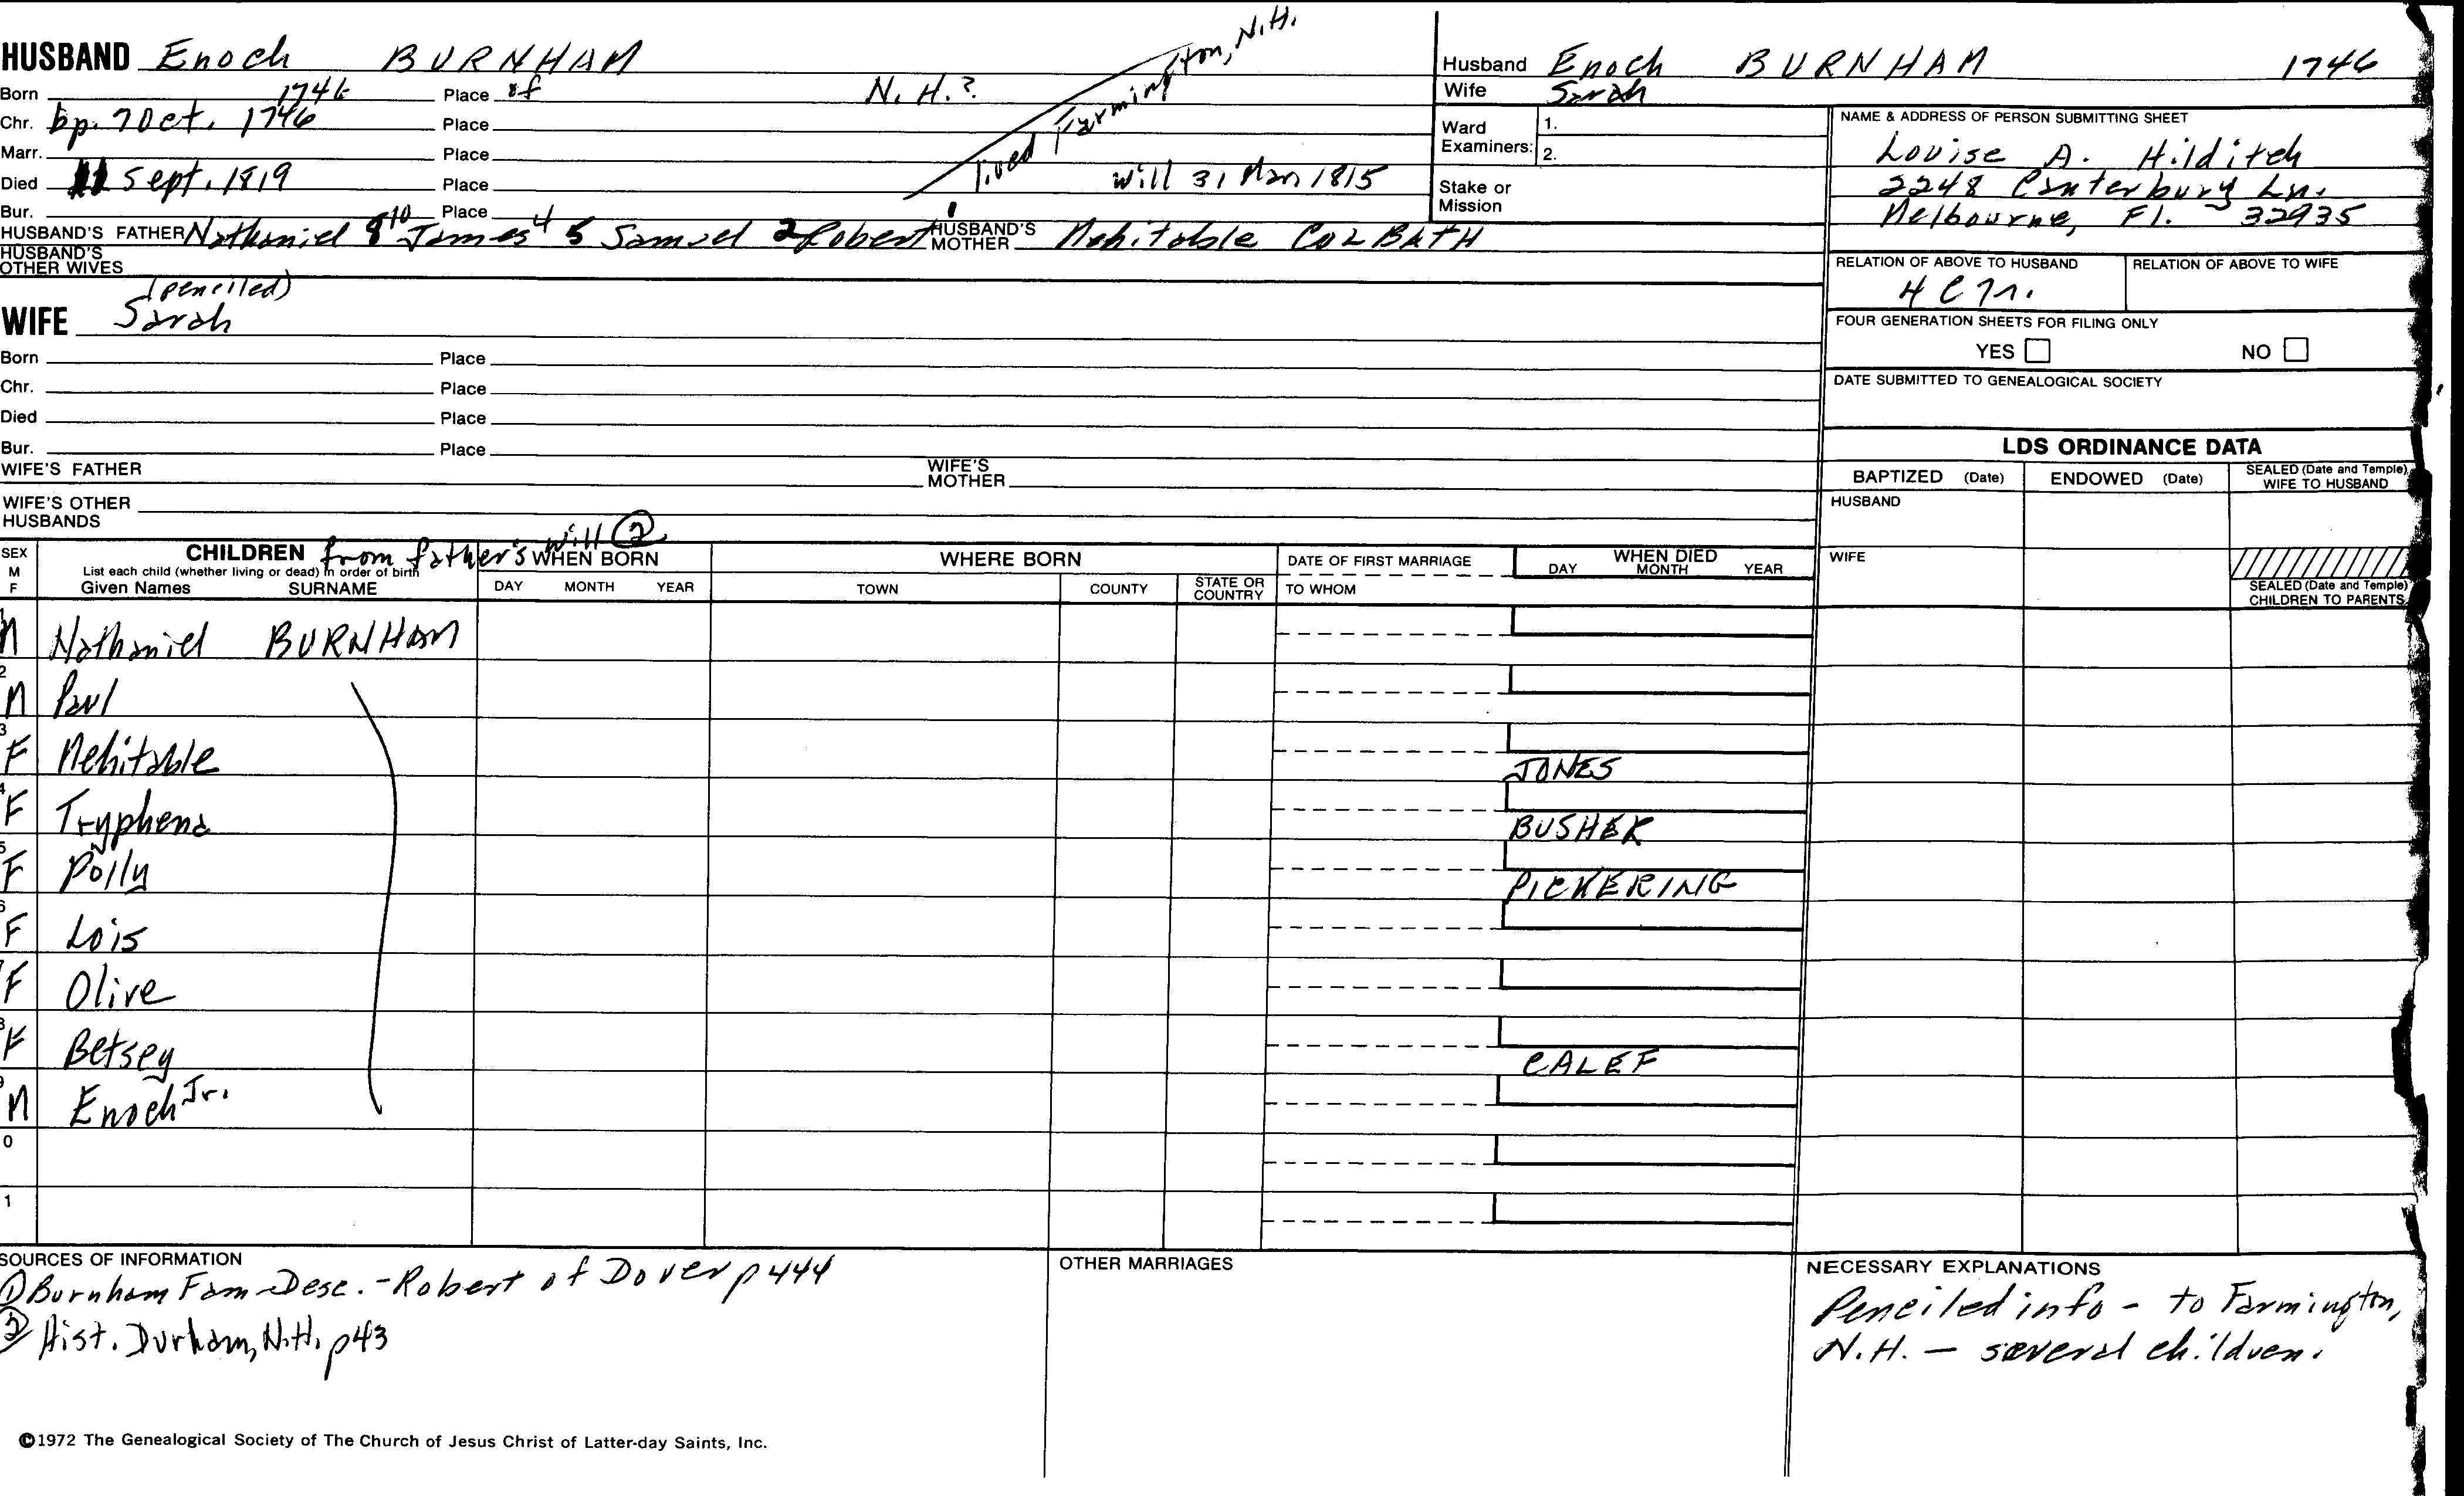 HUSBAND Enoch BURNHAM
Born 1746 Place of N.H.? lived Farmington, N.H.
Chr. bp. 7 Oct. 1746 Place
Marr. Place
Died Sept. 1819 Place will 31 Mar 1815
Bur. Place
HUSBAND'S FATHER Nathaniel James 4 5 Samuel 2 Robert 1 HUSBAND'S MOTHER Mehitable COLBATH
HUSBAND'S OTHER WIVES
(penciled)
WIFE Sarah
Born Place
Chr. Place
Died Place
Bur. Place
WIFE'S FATHER WIFE'S MOTHER
WIFE'S OTHER HUSBANDS
Husband Enoch BURNHAM 1746
Wife Sarah
Ward Examiners: 1.
2.
Stake or Mission
NAME & ADDRESS OF PERSON SUBMITTING SHEET
Louise A. Hilditch
2248 Canterbury Ln.
Melbourne, Fl. 32935
RELATION OF ABOVE TO HUSBAND RELATION OF ABOVE TO WIFE
FOUR GENERATION SHEETS FOR FILING ONLY
YES NO
DATE SUBMITTED TO GENEALOGICAL SOCIETY
LDS ORDINANCE DATA
BAPTIZED (Date) ENDOWED (Date) SEALED (Date and Temple) WIFE TO HUSBAND
HUSBAND
WIFE
SEALED (Date and Temple) CHILDREN TO PARENTS
SEX M F
CHILDREN from father's will ②
List each child (whether living or dead) in order of birth
Given Names SURNAME
WHEN BORN
DAY MONTH YEAR
WHERE BORN
TOWN COUNTY STATE OR COUNTRY
DATE OF FIRST MARRIAGE
TO WHOM
WHEN DIED
DAY MONTH YEAR
1 M Nathaniel BURNHAM
2 M Paul
3 F Mehitable JONES
4 F Tryphena BUSHER
5 F Polly PICKERING
6 F Lois
7 F Olive
8 F Betsey CALEF
9 M Enoch Jr.
0
1
SOURCES OF INFORMATION
① Burnham Fam-Desc. - Robert of Dover p444
② Hist. Durham, N.H. p43
OTHER MARRIAGES
NECESSARY EXPLANATIONS
Penciled info - to Farmington,
N.H. - several children.
©1972 The Genealogical Society of The Church of Jesus Christ of Latter-day Saints, Inc.